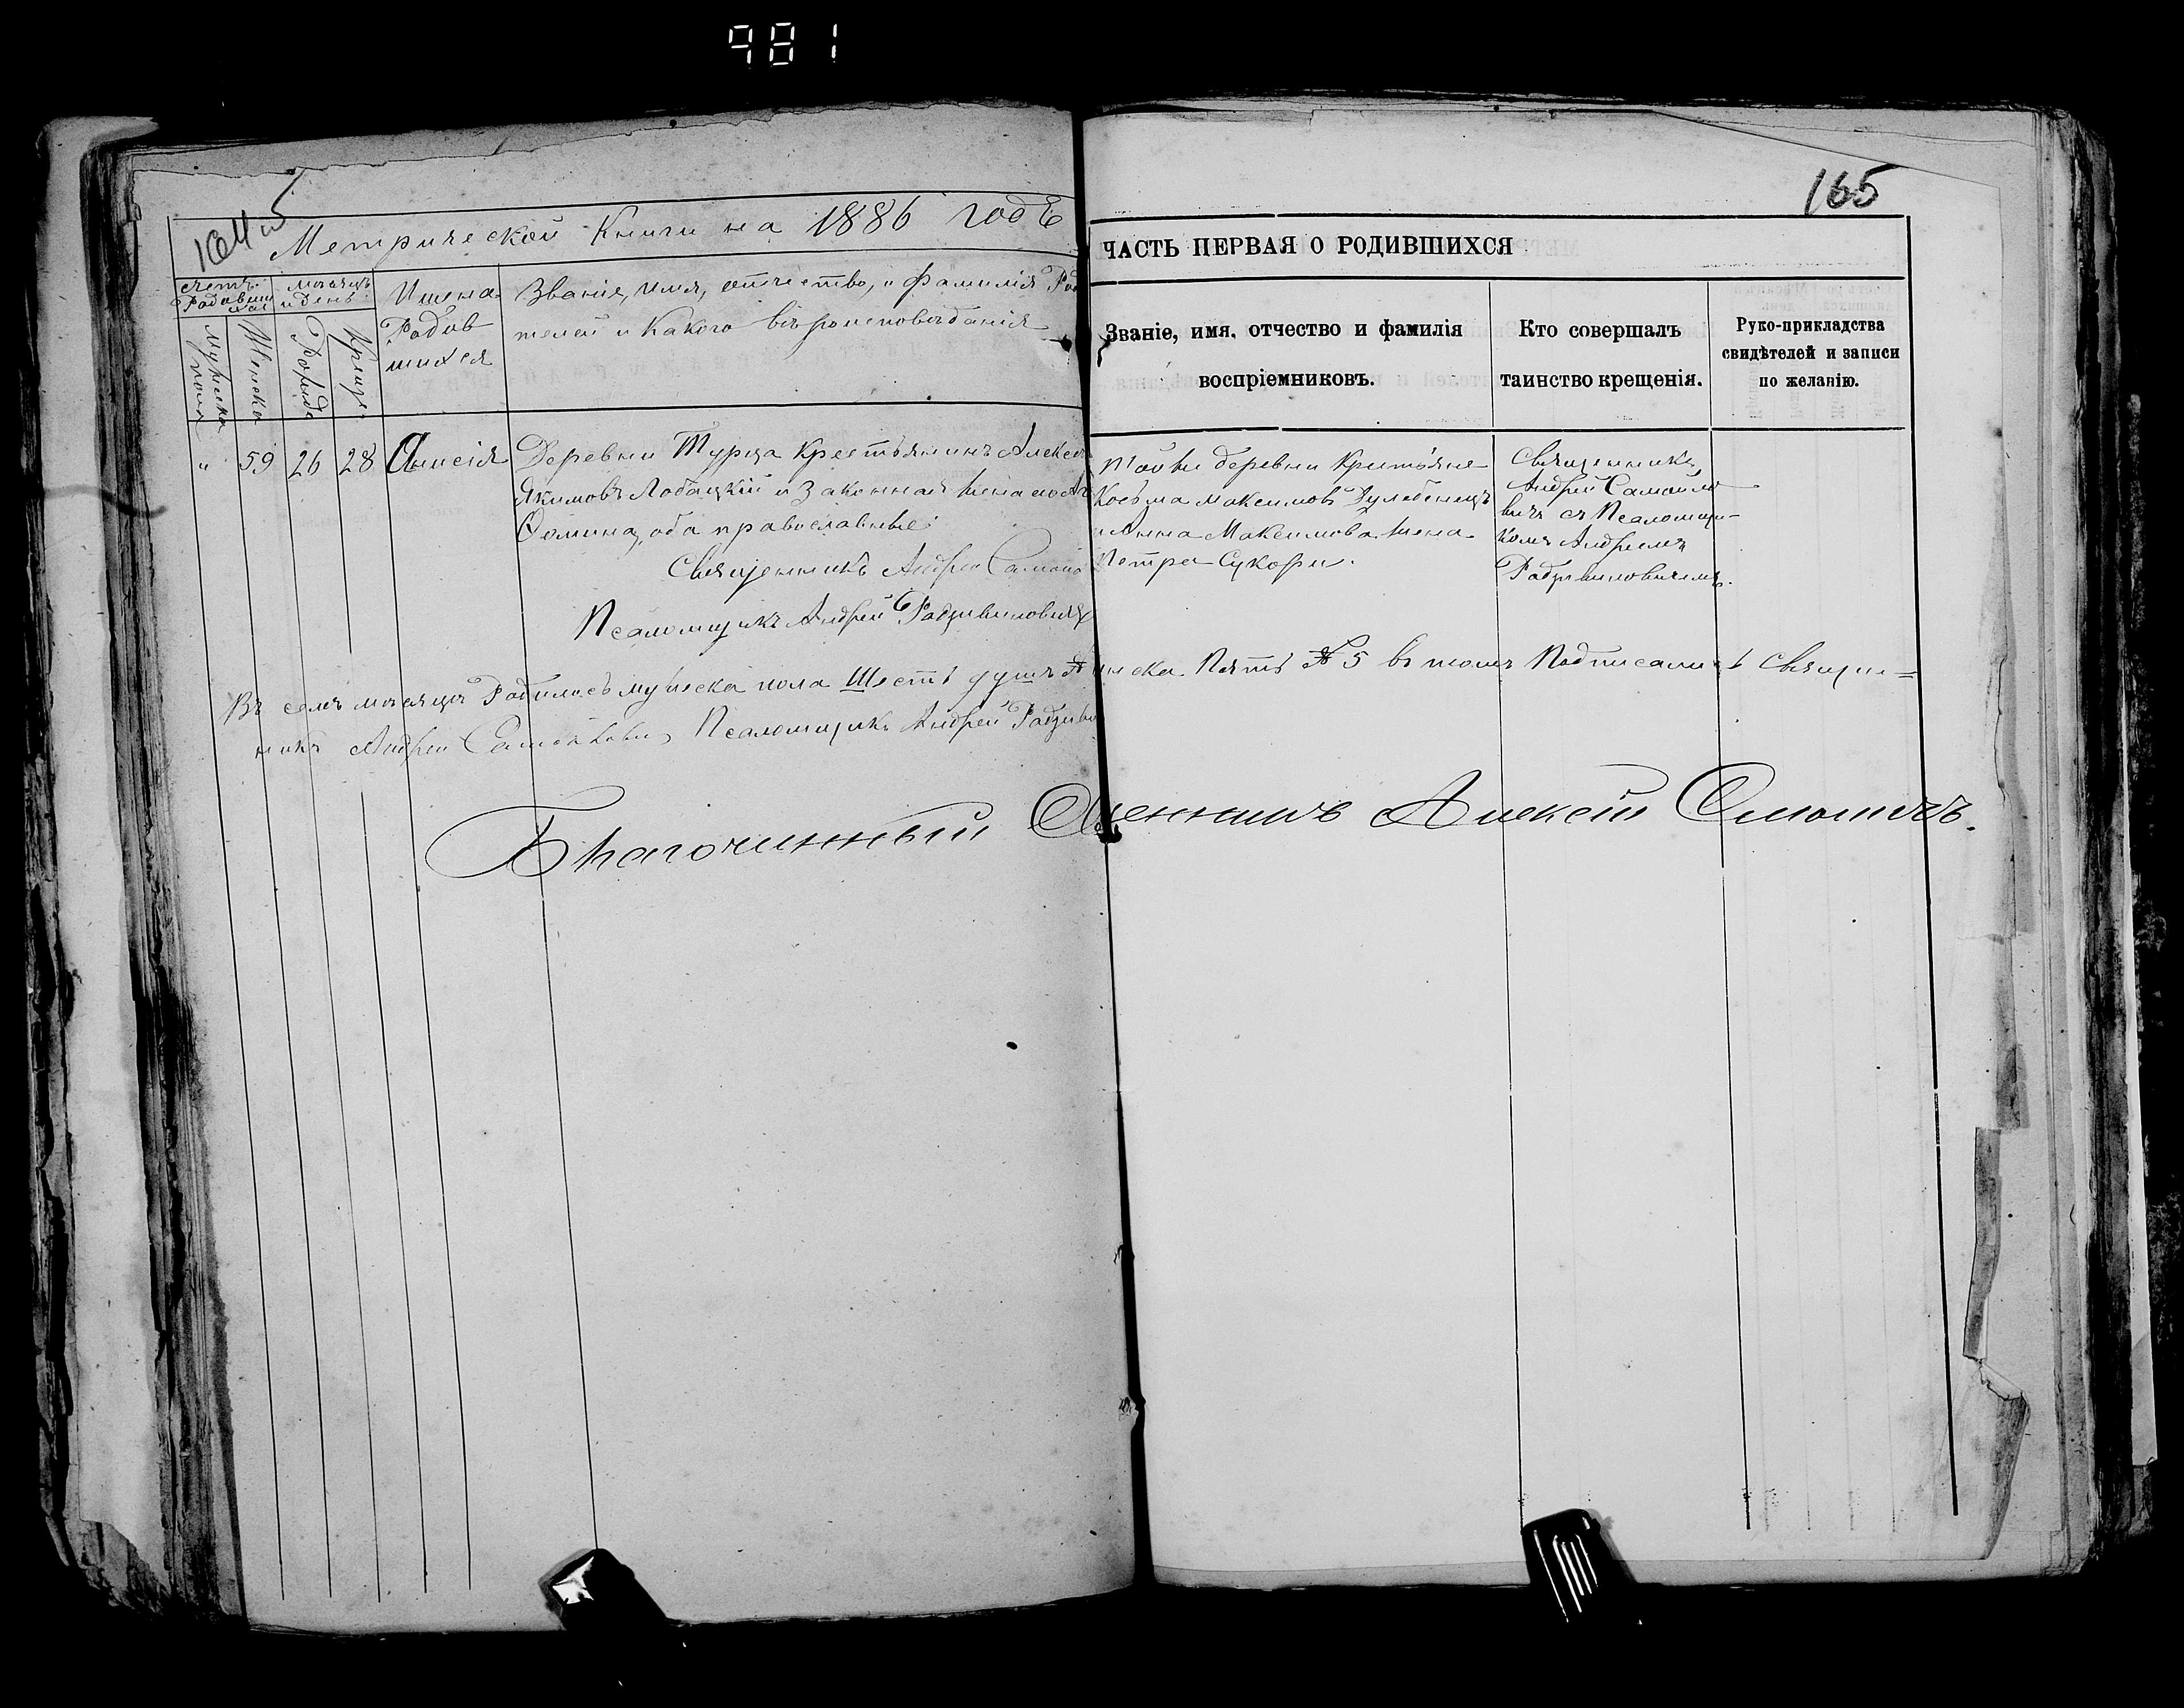 981
165
Метрической Книги на 1886 годъ
ЧАСТЬ ПЕРВАЯ О РОДИВШИХСЯ
счетъ
мѣсяцъ и день
Имена Родив шихся
Званіе, имя, отчество, и фамилія Ро
телей и Какого вѣроисповѣданія
Званіе, имя, отчество и фамилія
воспріемниковъ.
Кто совершалъ
таинство крещенія.
Руко-прикладства
свидѣтелей и записи
по желанію.
" 59 26 28 Анисія
Деревни Турца Крестьянинъ Алексѣ
Якимовъ Лобацкій и Законная жена его
Ѳомина, оба православные.
Священникъ Андрей Само
Псаломщикъ Андрей Радзивиновичъ
Той же деревни Крестьяне
Косьма Максимовъ
и Анна Максимова жена
Петра Сукори.
Священникъ
Андрей Самойло
вичъ съ Псаломщи-
комъ Андреемъ
Радзивиновичемъ.
Въ семъ мѣсяцѣ Родилось мужеска пола Шесть душъ женска Пять № 5 въ томъ Подписались Священ=
никъ Андрей Псаломщикъ Андрей Радзиви
Благочинный Священникъ Алексѣй